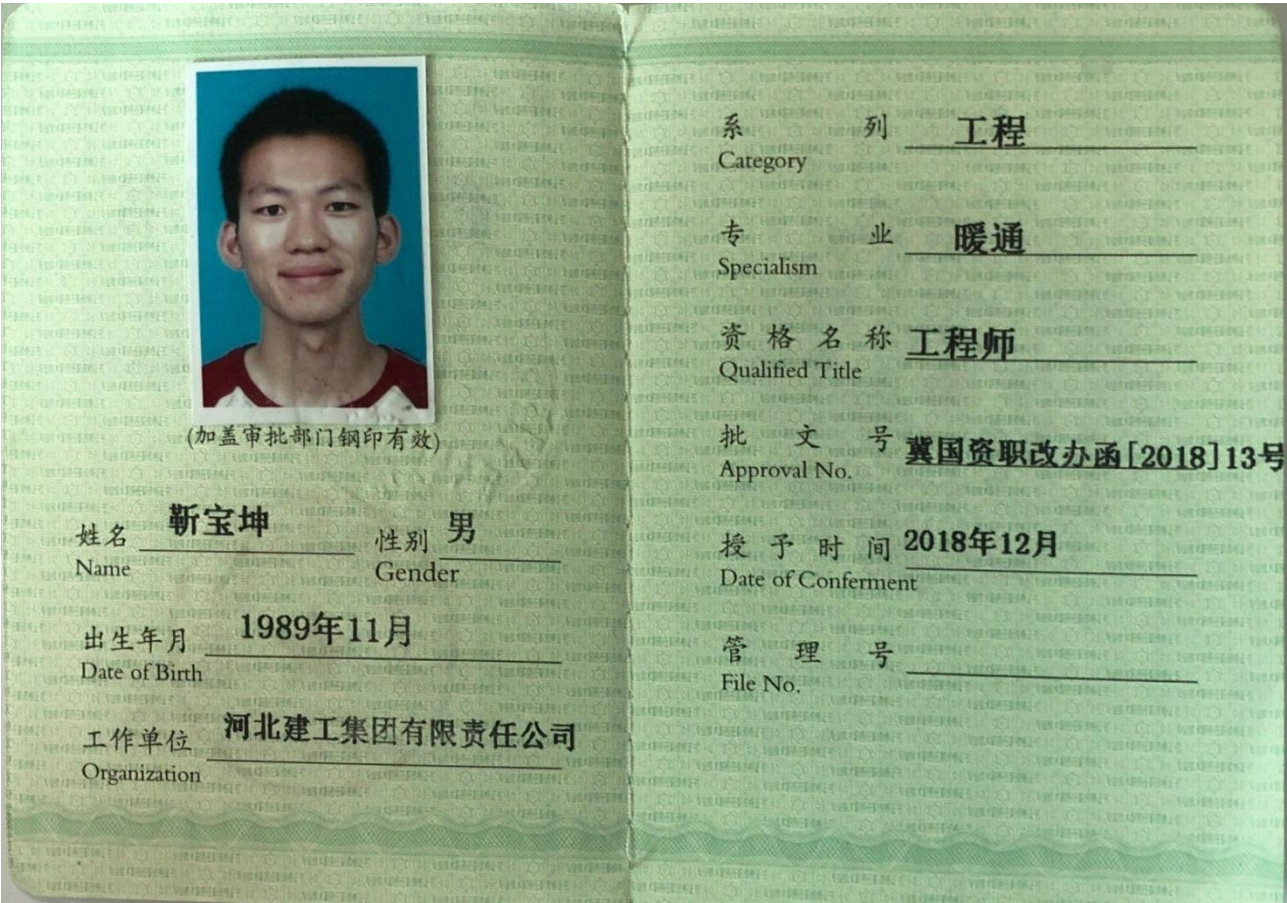 (加盖审批部门钢印有效)
姓名 靳宝坤 性别 男
Name Gender
出生年月 1989年11月
Date of Birth
工作单位 河北建工集团有限责任公司
Organization
系列 工程
Category
专业 暖通
Specialism
资格名称 工程师
Qualified Title
批文号 冀国资职改办函[2018]13号
Approval No.
授予时间 2018年12月
Date of Conferment
管理号
File No.